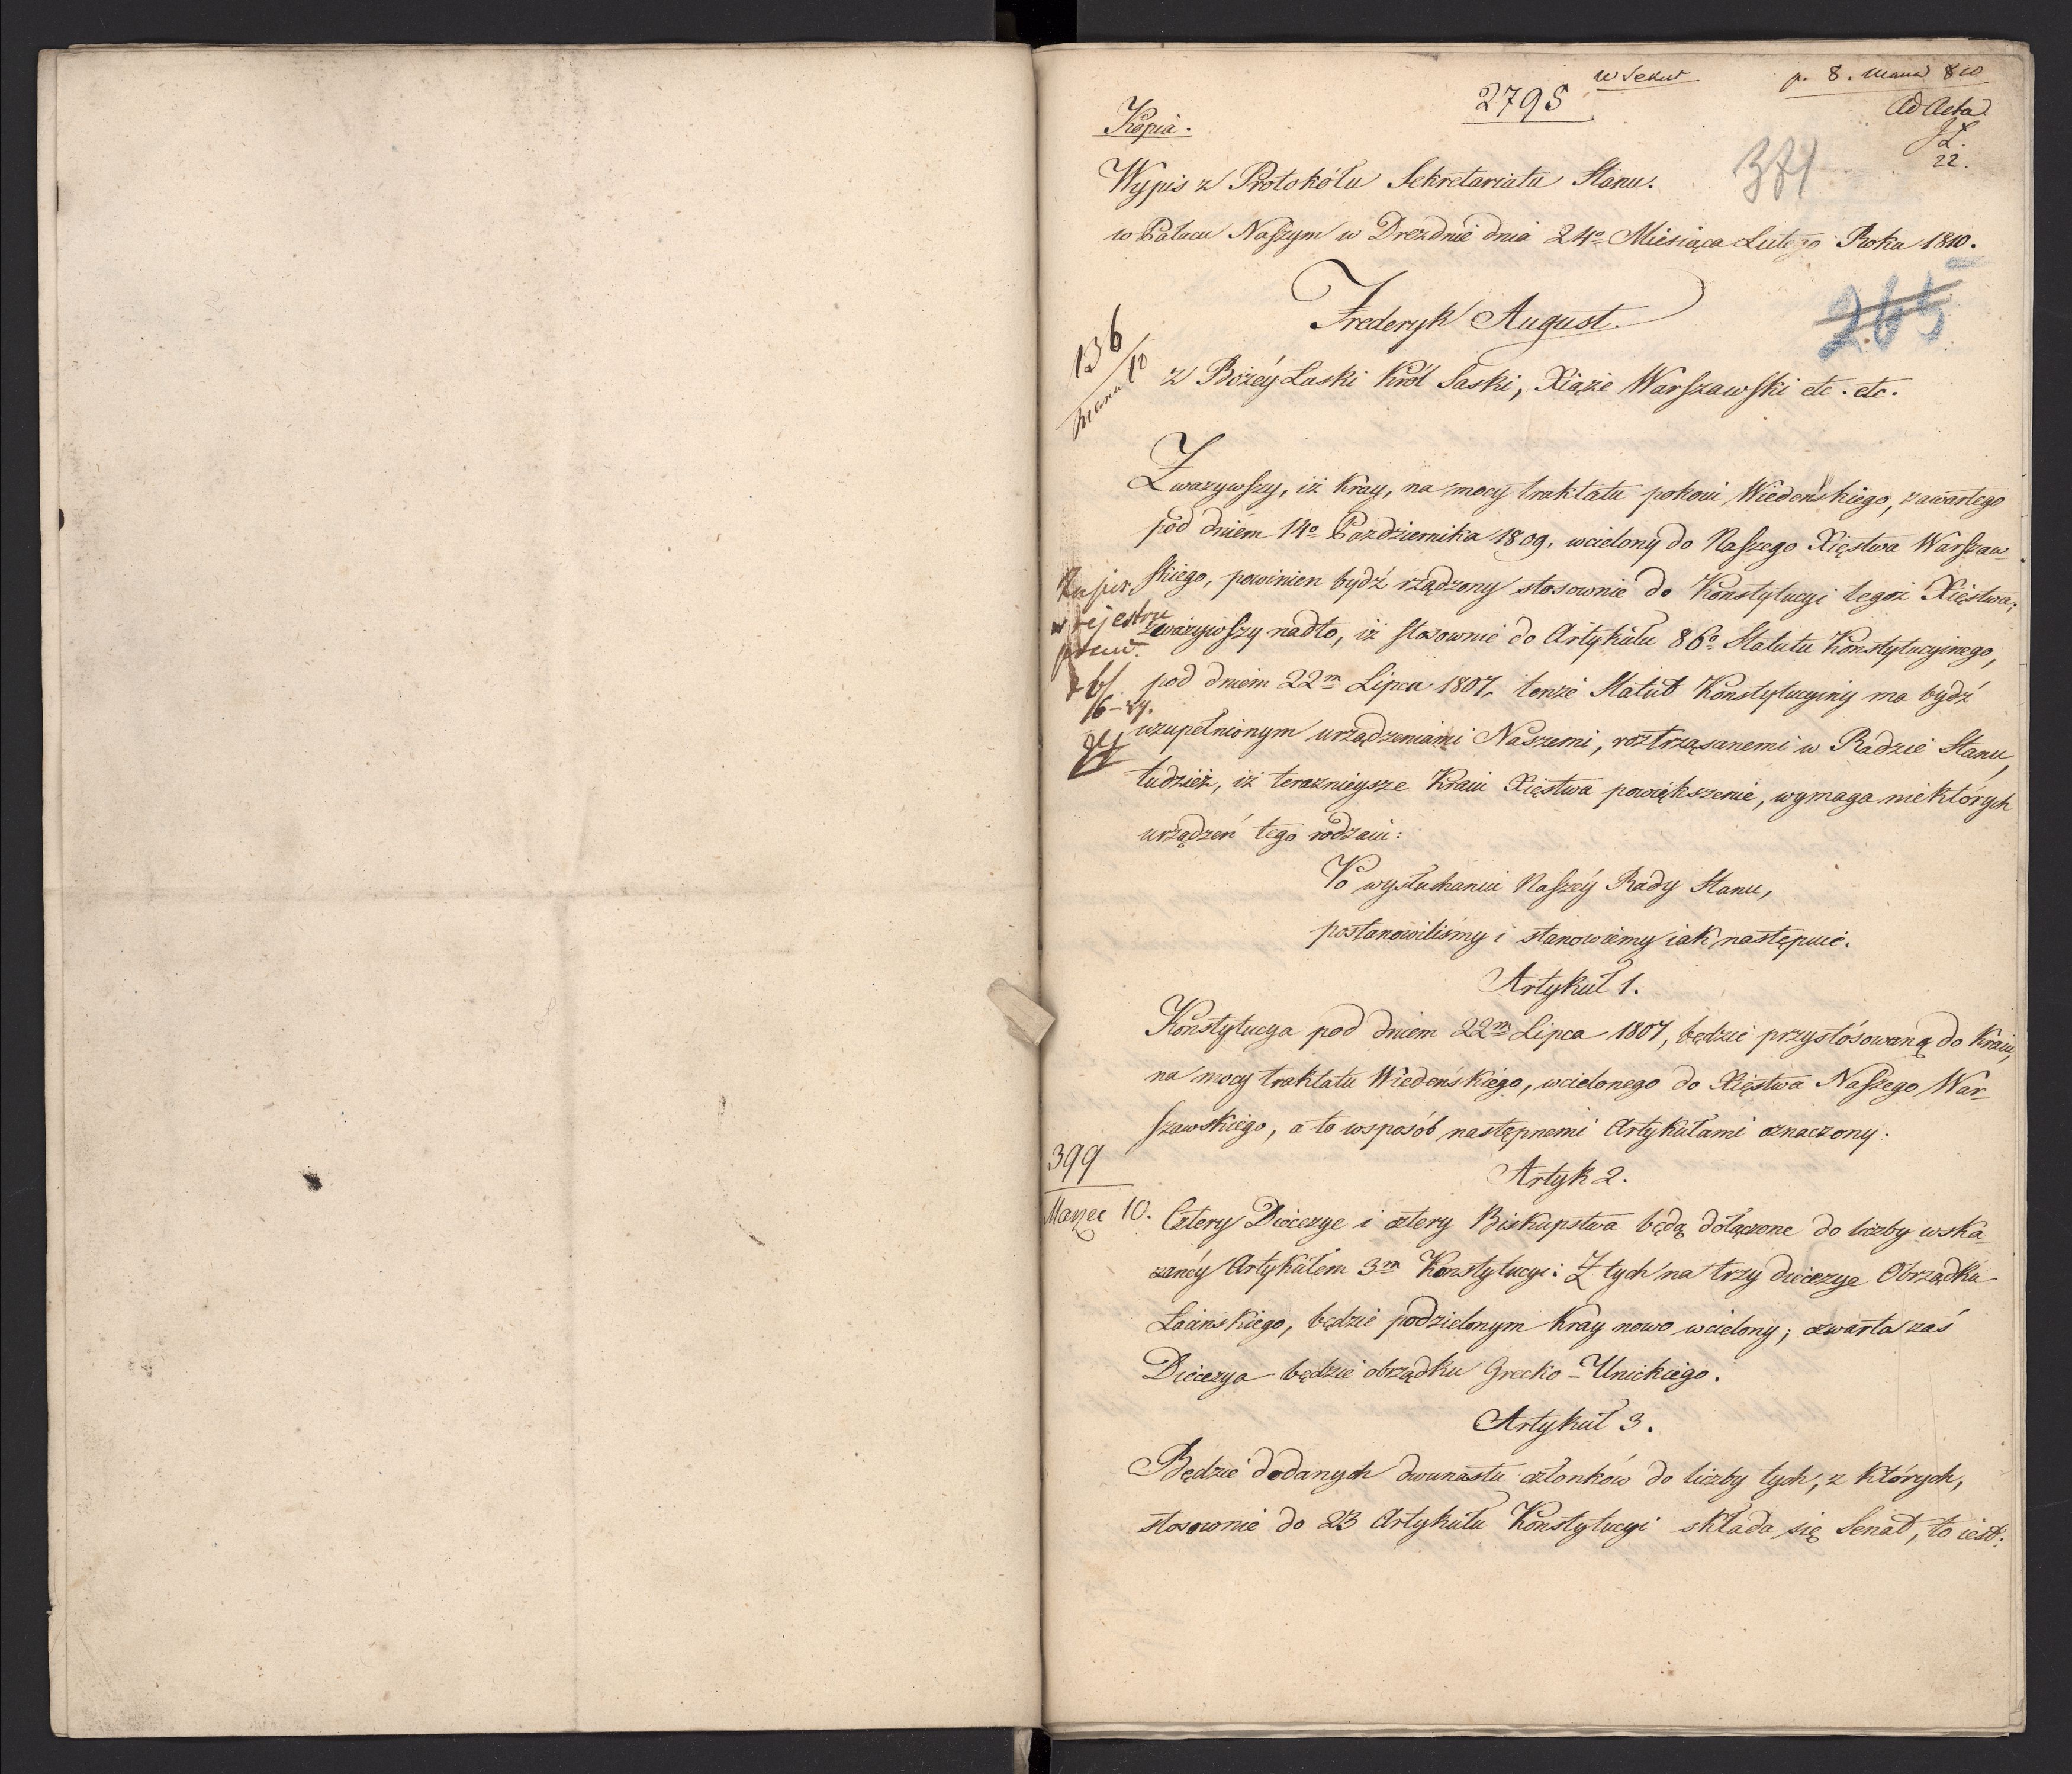 2795
p. 8. Marca 810
Ad Acta
22.
Kopia.
Wypis z Protokółu Sekretariatu Stanu.
w Pałacu Naszym w Dreznie dnia 24o Miesiąca Lutego Roku 1810.
265
Frederyk August.
136
10
z Bożéy Łaski Król Saski, Xiąże Warszawski etc. etc.
Zważywszy, iż Kray, na mocy traktatu pokoiu Wiedeńskiego, zawartego
pod dniem 14o Pazdziernika 1809. wcielony do Naszego Xięstwa Warszaw-
skiego, powinien bydź rządzony stosownie do Konstytucyi tegoż Xięstwa;
w rejestru
zważywszy nadto, iż stosownie do Artykułu 86o Statutu Konstytucyinego,
pod dniem 22m Lipca 1807, tenże Statut Konstytucyiny ma bydź
uzupełnionym urządzeniami Naszemi, roztrząsanemi w Radzie Stanu,
tudzież, iż teraznieysze Kraiu Xięstwa powiększenie, wymaga niektórych
urządzeń tego rodzaiu:
Po wysłuchaniu Naszéy Rady Stanu,
postanowiliśmy i stanowiemy iak następuie.
Artykuł 1.
Konstytucya pod dniem 22m Lipca 1807, będzie przystósowaną do Kraiu,
na mocy traktatu Wiedeńskiego, wcielonego do Xięstwa Naszego War-
szawskiego, a to wsposób następnemi Artykułami oznaczony:
399
Artyk 2.
Marzec 10.
Cztery Diecezye i cztery Biskupstwa będą dołączone do liczby wska-
zanéy Artykułem 3m Konstytucyi: Z tych na trzy diecezye Obrządku
Łacinskiego, będzie podzielonym Kray nowo wcielony; czwarta zaś
Diecezya będzie obrządku Grecko-Unickiego.
Artykuł 3.
Będzie dodanych dwunastu członków do liczby tych, z których,
stosownie do 23 Artykułu Konstytucyi składa się Senat, to iest: